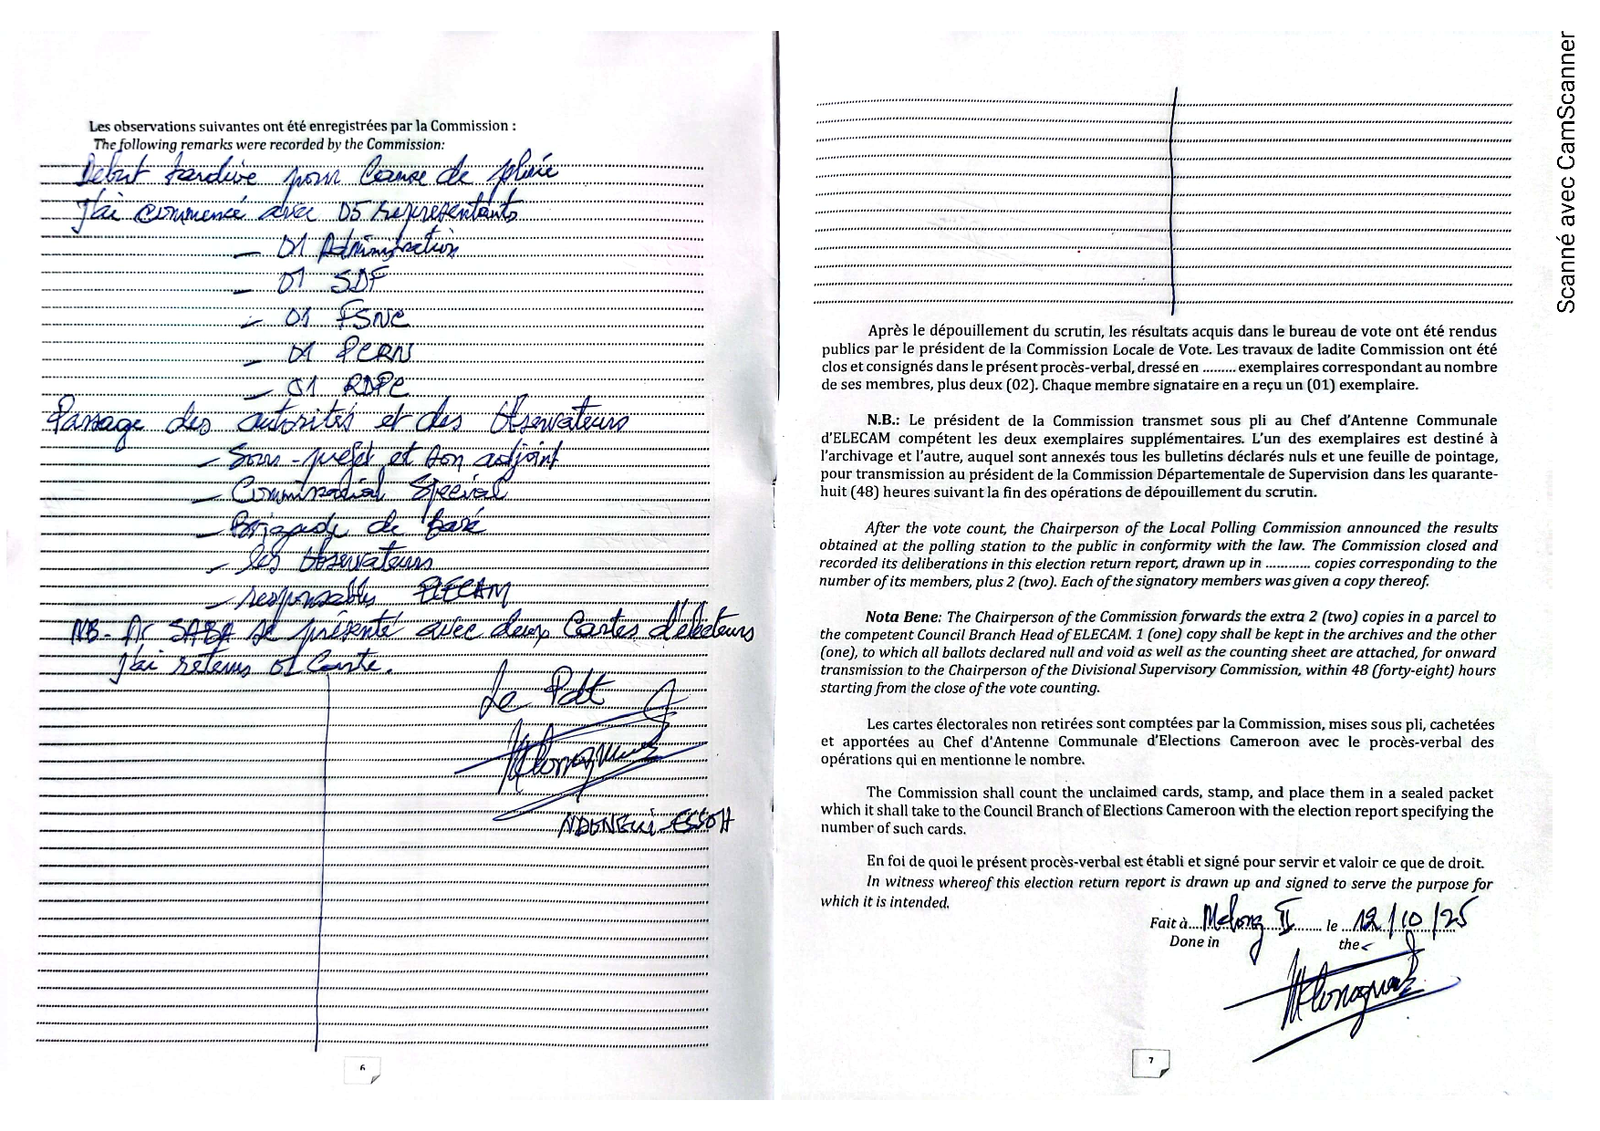 Les observations suivantes ont été enregistrées par la Commission :
The following remarks were recorded by the Commission:
Début tardive pour Cause de pluie
J'ai commencé avec 05 représentants
- 01 Administration
- 01 SDF
- 01 FSNC
- 01 PCRN
- 01 RDPC
Passage des autorités et des Observateurs
- Sous-préfet et son adjoint
- Spécial
- Brigade de Baré
- les Observateurs
- responsables ELECAM
NB- Mr SABA se présenté avec deux Cartes d'électeurs
J'ai retenus 01 Carte.
Le Pdt
NDONGUI ESSOH
6
Après le dépouillement du scrutin, les résultats acquis dans le bureau de vote ont été rendus
publics par le président de la Commission Locale de Vote. Les travaux de ladite Commission ont été
clos et consignés dans le présent procès-verbal, dressé en ......... exemplaires correspondant au nombre
de ses membres, plus deux (02). Chaque membre signataire en a reçu un (01) exemplaire.
N.B.: Le président de la Commission transmet sous pli au Chef d'Antenne Communale
d'ELECAM compétent les deux exemplaires supplémentaires. L'un des exemplaires est destiné à
l'archivage et l'autre, auquel sont annexés tous les bulletins déclarés nuls et une feuille de pointage,
pour transmission au président de la Commission Départementale de Supervision dans les quarante-
huit (48) heures suivant la fin des opérations de dépouillement du scrutin.
After the vote count, the Chairperson of the Local Polling Commission announced the results
obtained at the polling station to the public in conformity with the law. The Commission closed and
recorded its deliberations in this election return report, drawn up in ............ copies corresponding to the
number of its members, plus 2 (two). Each of the signatory members was given a copy thereof.
Nota Bene: The Chairperson of the Commission forwards the extra 2 (two) copies in a parcel to
the competent Council Branch Head of ELECAM. 1 (one) copy shall be kept in the archives and the other
(one), to which all ballots declared null and void as well as the counting sheet are attached, for onward
transmission to the Chairperson of the Divisional Supervisory Commission, within 48 (forty-eight) hours
starting from the close of the vote counting.
Les cartes électorales non retirées sont comptées par la Commission, mises sous pli, cachetées
et apportées au Chef d'Antenne Communale d'Elections Cameroon avec le procès-verbal des
opérations qui en mentionne le nombre.
The Commission shall count the unclaimed cards, stamp, and place them in a sealed packet
which it shall take to the Council Branch of Elections Cameroon with the election report specifying the
number of such cards.
En foi de quoi le présent procès-verbal est établi et signé pour servir et valoir ce que de droit.
In witness whereof this election return report is drawn up and signed to serve the purpose for
which it is intended.
Fait à.... Melong II ...... le ... 12/10/25
Done in the
7
Scanné avec CamScanner